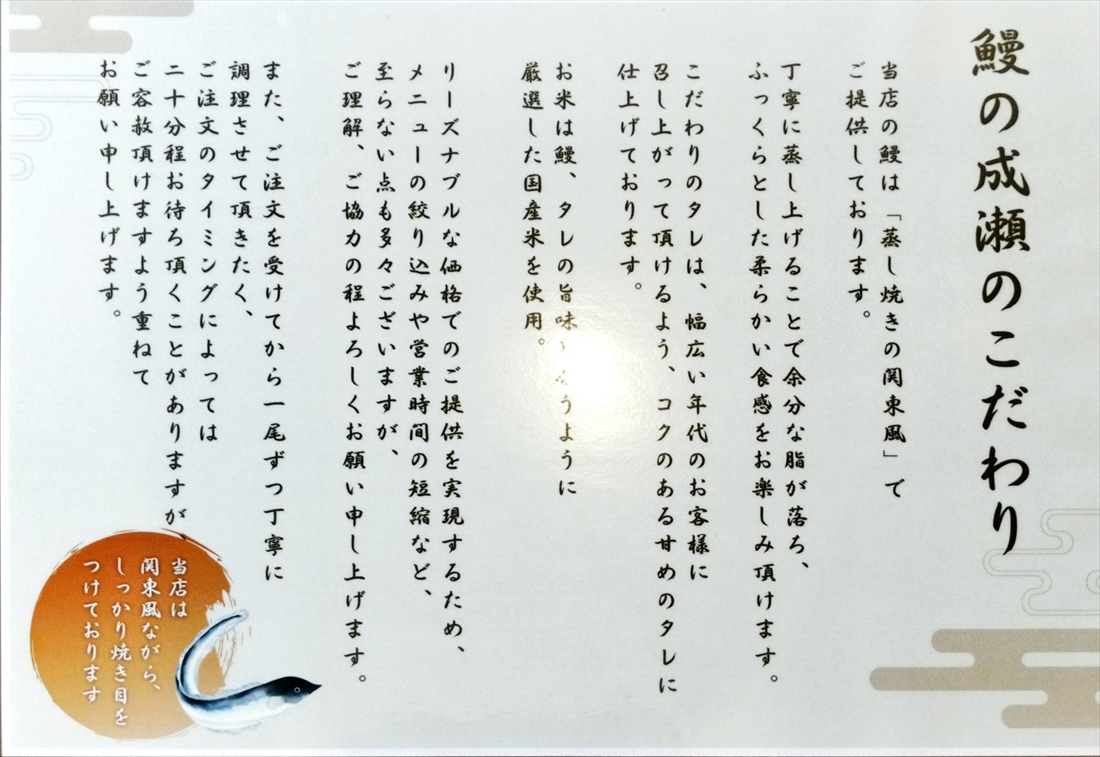 鰻の成瀬のこだわり
当店の鰻は「蒸し焼きの関東風」で
ご提供しております。
丁寧に蒸し上げることで余分な脂が落ち、
ふっくらとした柔らかい食感をお楽しみ頂けます。
こだわりのタレは、幅広い年代のお客様に
召し上がって頂けるよう、コクのある甘めのタレに
仕上げております。
お米は鰻、タレの旨味うように
厳選した国産米を使用。
リーズナブルな価格でのご提供を実現するため、
メニューの絞り込みや営業時間の短縮など、
至らない点も多々ございますが、
ご理解、ご協力の程よろしくお願い申し上げます。
また、ご注文を受けてから一尾ずつ丁寧に
調理させて頂きたく、
ご注文のタイミングによっては
二十分程お待ち頂くことがありますが
ご容赦頂けますよう重ねて
お願い申し上げます。
当店は
関東風ながら、
しっかり焼き目を
つけております